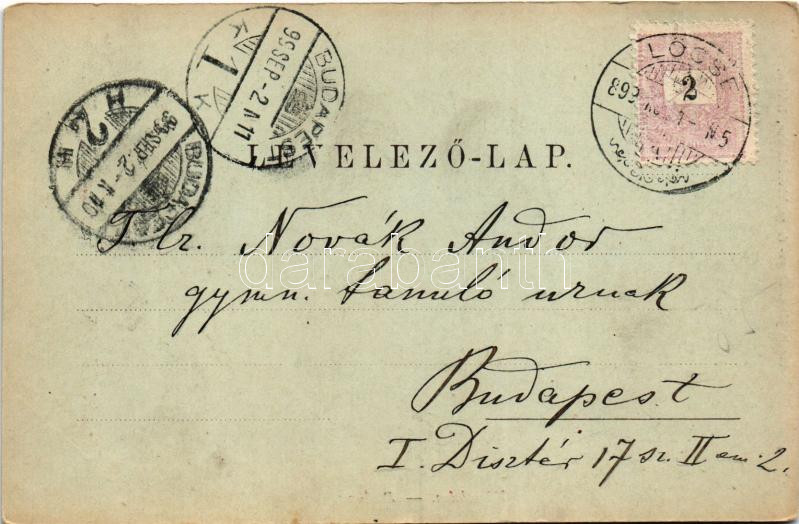 BUDAPEST
99 SEP -2 N 11
K 1 K
BUDAPEST
99 SEP -2
2
LŐCSE
2
LEVELEZŐ-LAP.
darabanth
Novák Andor
gymn. tanuló urnak
Budapest
I. Disztér 17 sz. II em. 2.